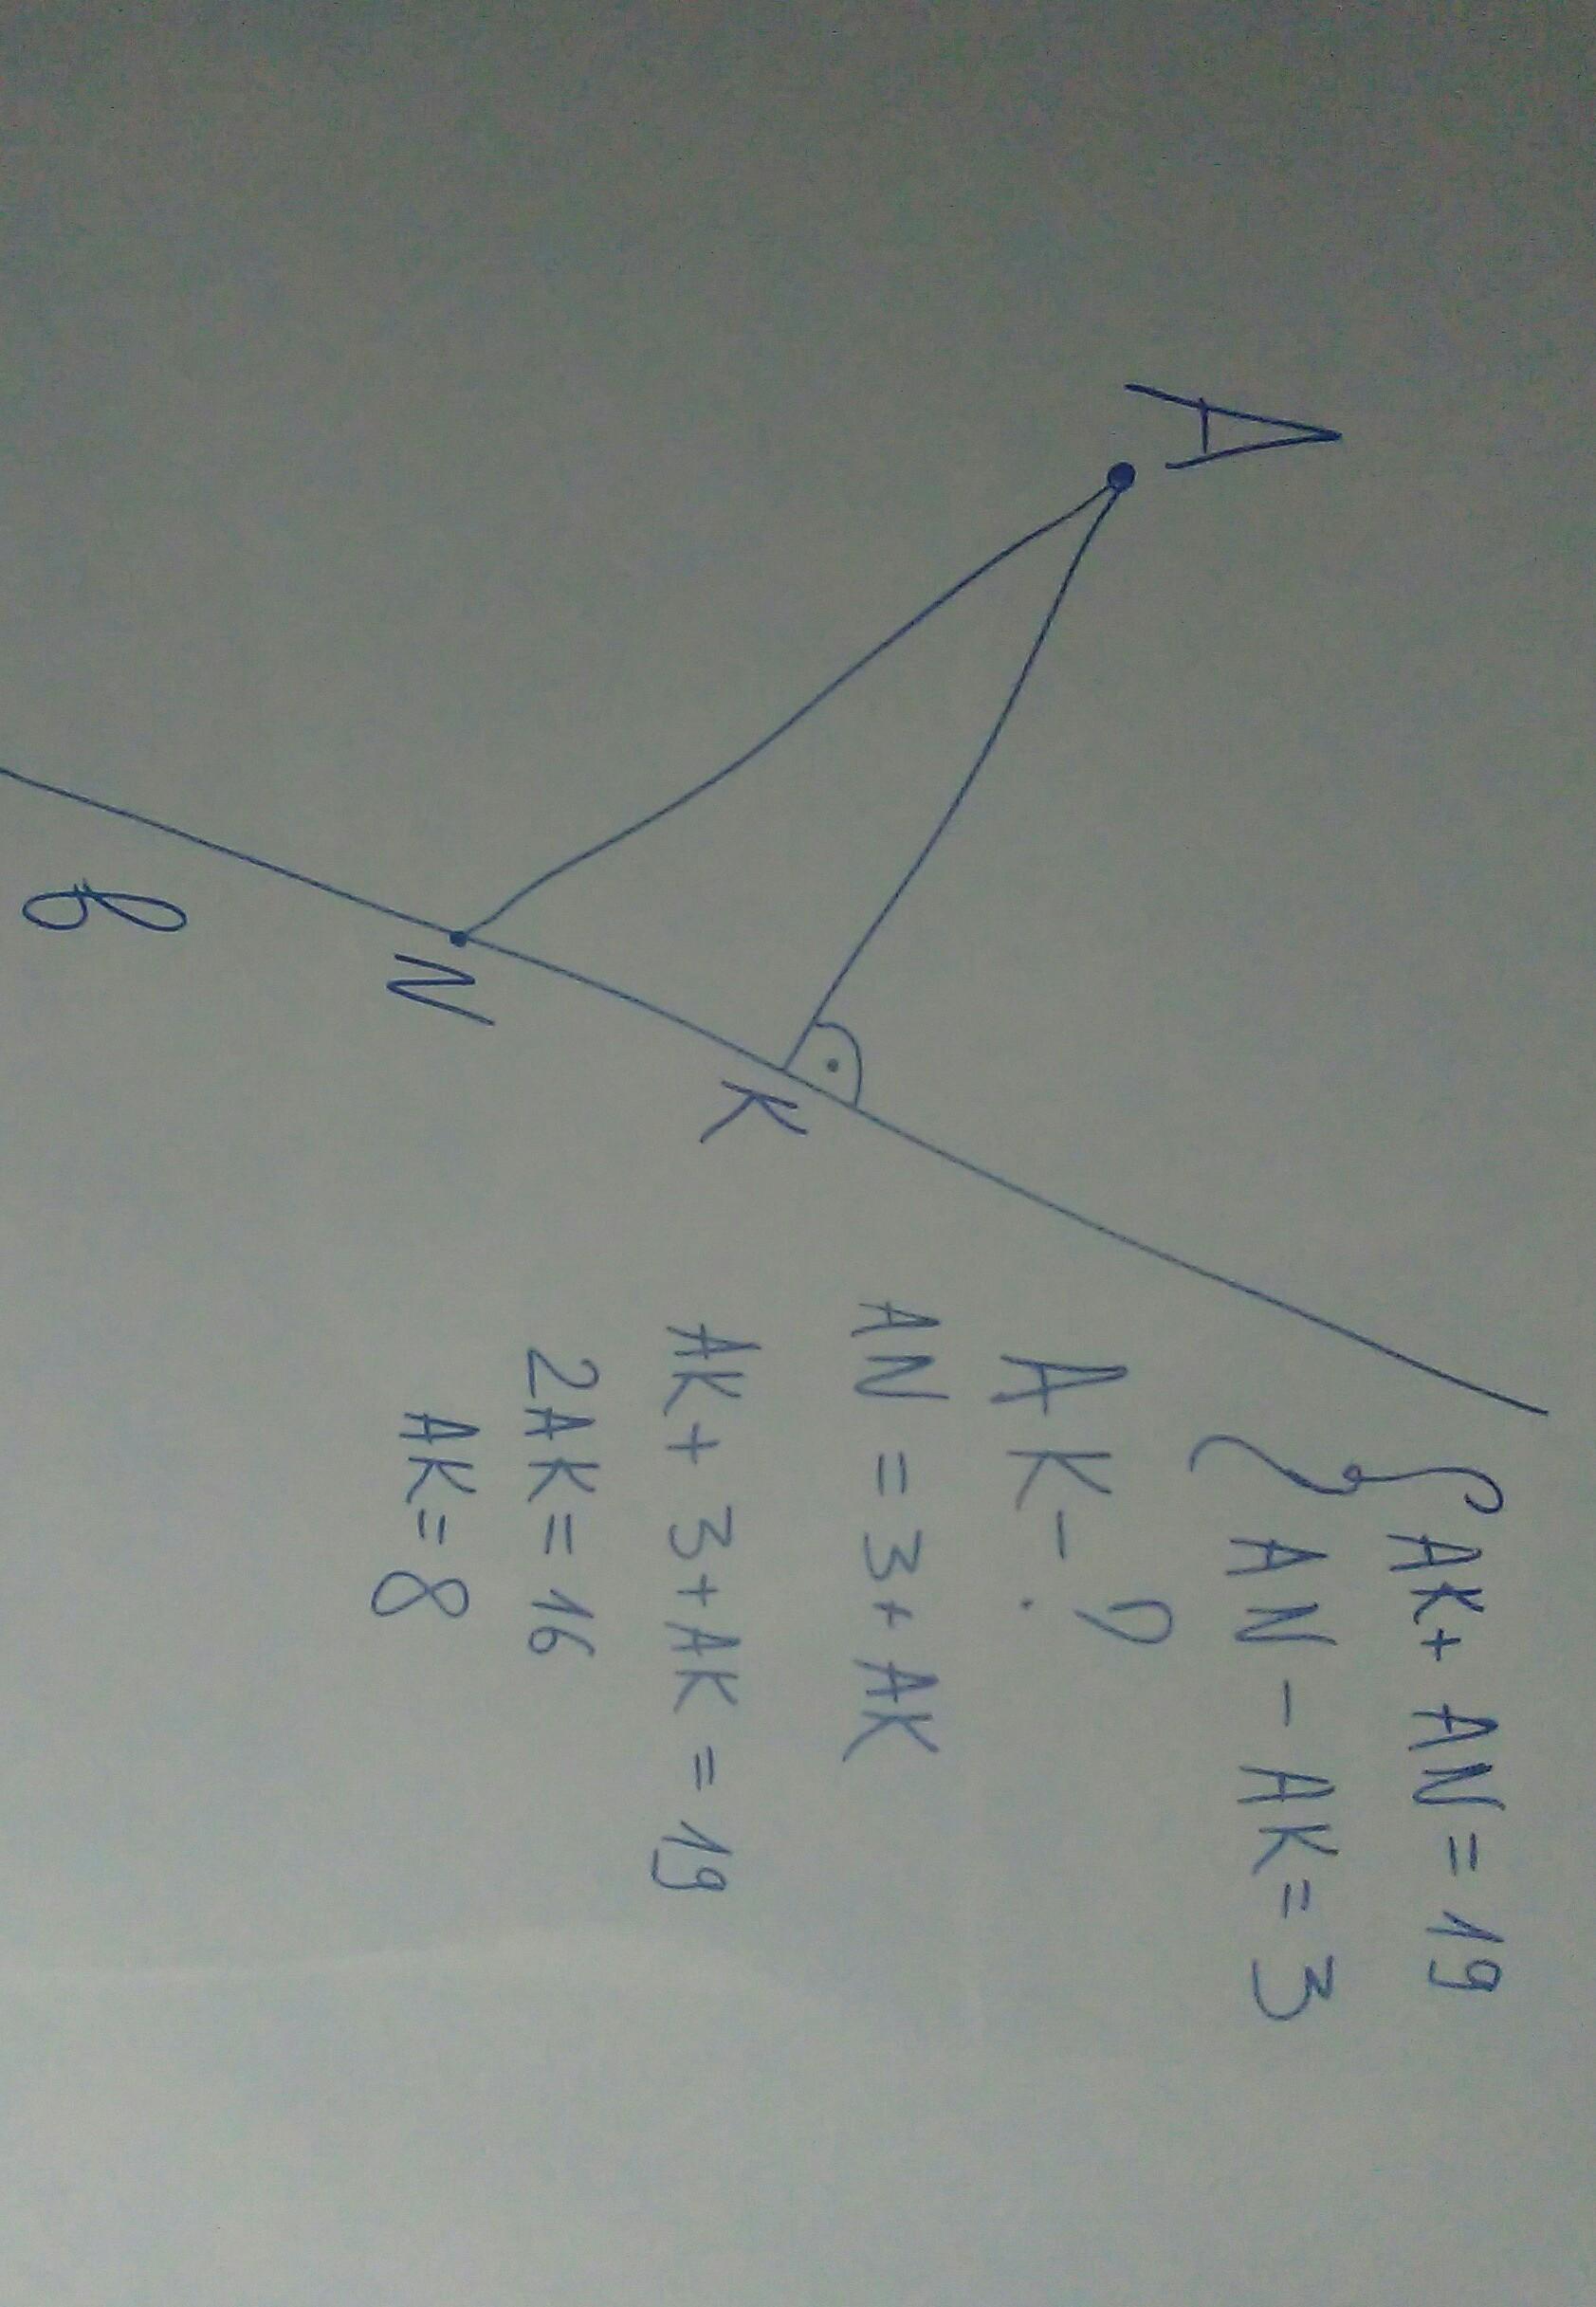 A
N
K
в
AK + AN = 19
AN - AK = 3
AK - ?
AN = 3 + AK
AK + 3 + AK = 19
2AK = 16
AK = 8